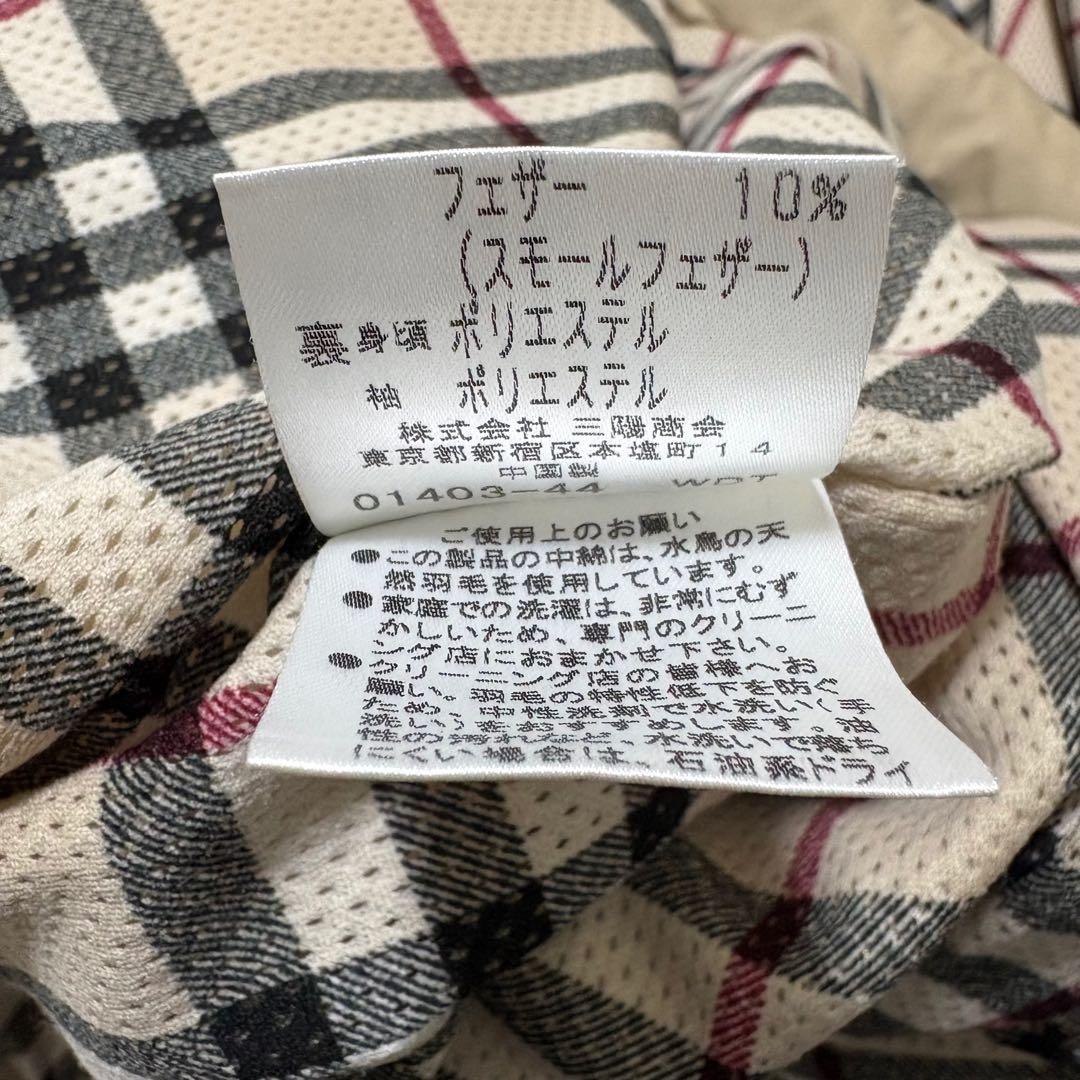 フェザー 10%
(スモールフェザー)
裏 身頃 ポリエステル
袖 ポリエステル
株式会社 三陽商会
東京都新宿区本塩町14
中国製
01403-44
ご使用上のお願い
●この製品の中綿は、水鳥の天
然羽毛を使用しています。
●家庭での洗濯は、非常にむず
かしいため、専門のクリーニ
ング店におまかせ下さい。
●クリーニング店の皆様へお
願い、羽毛の特性低下を防ぐ
ため、中性洗剤で水洗い(手
洗い)をおすすめします。油
水洗いで落ち
にくい場合は、石油系ドライ